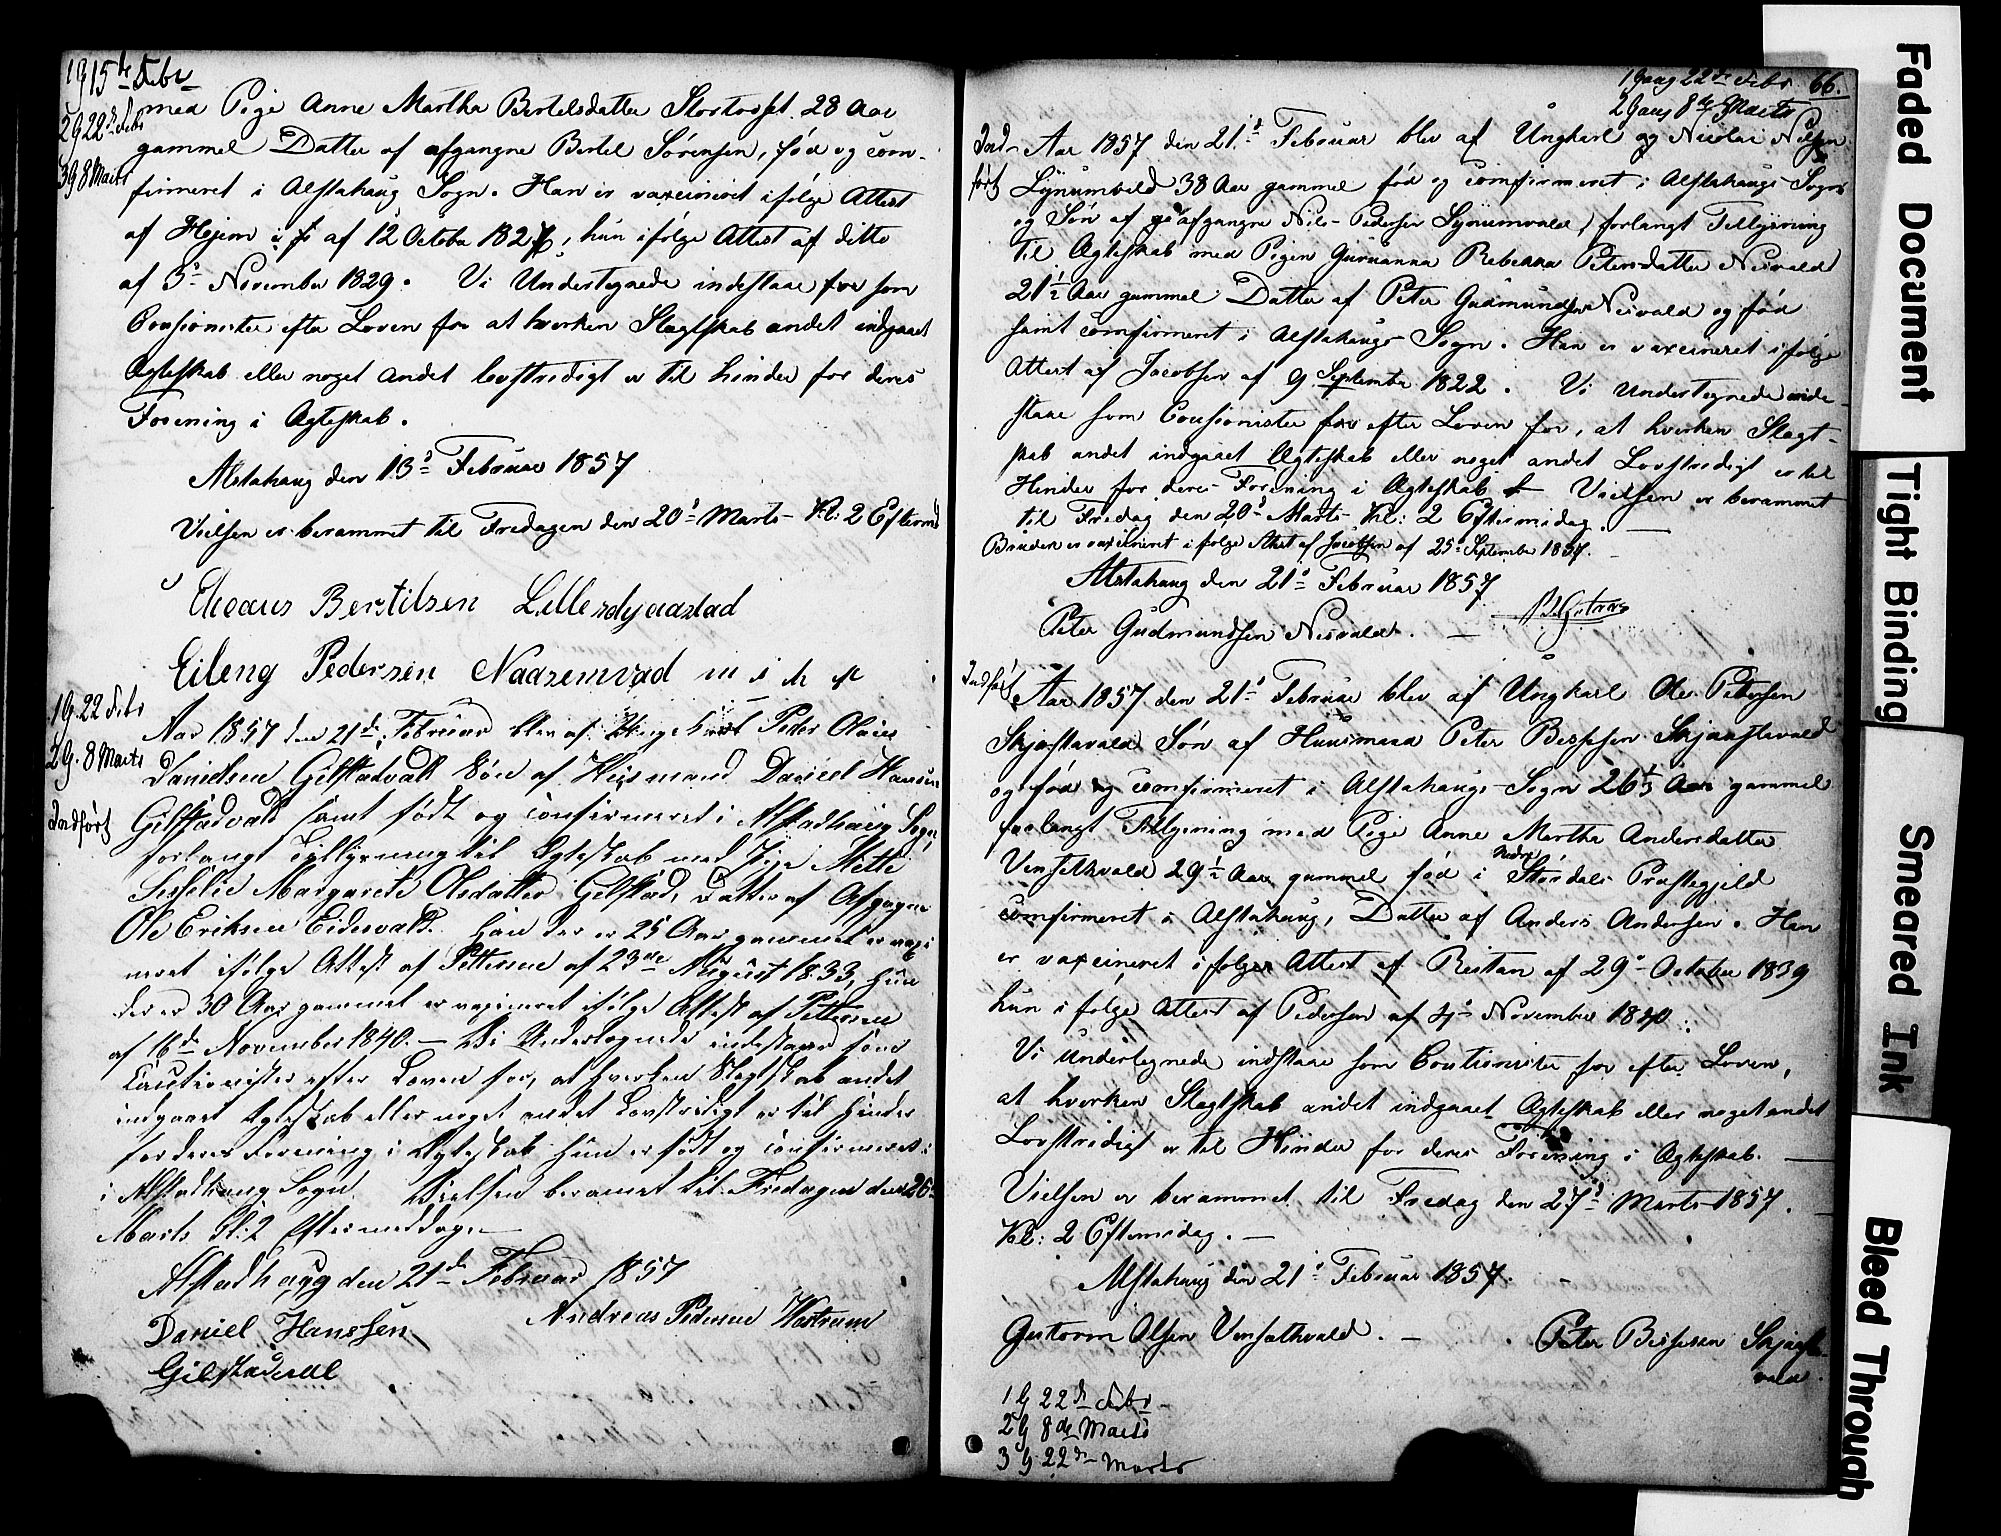 1G 15de Febr
2G 22de Febr
3G 8 Marts
med Pige Anne Martha Bertelsdatter Stortroset 28 Aar
gammel Datter af afgangne Bertel Sørensen, fød og com-
firmeret i Alstahaug Sogn. Han er vaxcineret ifølge Attest
af Hjem af 12 October 1827, hun ifølge Attest af ditto
af 3d November 1829. Vi Undertegnede indestaae for som
Causionister efter Loven for at hverken Slægtskab andet indgaaet
Ægteskab eller noget andet lovstridigt er til hinder for deres
Forening i Ægteskab.
Alstahaug den 13d Februar 1857
Vielsen er berammet til Fredagen den 20d Marts Kl: 2 Efterm
Bertilsen
Eileng Pedersen
1G. 22 Febr
2G. 8 Marts
Indført
Aar 1857 den 21de Februar blev af Ungkarl Peder Olaus
Danielsen Gilstadvald Søn af Huusmand Daniel Hansen
Gilstadvald samt født og confirmeret i Alstadhaug Sogn,
forlangt Tillysning til Ægteskab med Pige Mette
Sesselie Margarete Olsdatter Gilstad, Datter af Afgagne
Ole Eriksen Eidsvald. Han der er 25 Aar gammel er vaxi
neret ifølge Attest af Pettersen af 23de August 1833, hun
der er 30 Aar gammel er vaxineret ifølge Attest af Pettersen
af 16de November 1840. – Vi Undertegnede indestaaer som
Cautionister efter Loven for, at hverken Slægtskab andet
indgaaet Ægteskab eller noget andet Lovstridigt er til Hinder
for deres Forening i Ægteskab. Hun er født og confirmeret
i Alstadhaug Sogn. Vielsen beramet til Fredagen den 26
Marts Kl. 2 Eftermiddag. –
Alstadhaug den 21de Februar 1857
Daniel Hanssen
Andreas Pedersen
Gilstadvald
1 Gang 22de Febr 66.
2 Gang 8de Marts
Ind-
ført
Aar 1857 den 21d Februar blev af Ungkarl og Nicolai Nilsen
Lynumvald 38 Aar gammel fød og comfirmeret i Alstahaugs Sogn
og Søn af afgangne Nils Pedersen Lynumvald, forlangt Tillysning
til Ægteskab med Pigen Guruanna Rebekka Petersdatter Nesvald
21½ Aar gammel Datter af Peter Gudmundsen Nesvald og fød
samt comfirmeret i Alstahaugs Sogn. Han er vaxcineret ifølge
Attest af Jacobsen af 9 September 1822. Vi Undertegnede inde-
staae som Causionister for efter Loven for, at hverken Slægt-
skab andet indgaaet Ægteskab eller noget andet Lovstridigt er til
Hinder for deres Forening i Ægteskab Vielsen er berammet
til Fredag den 20d Marts Kl: 2 Eftermidag.
Bruden er vaxcineret i følge Attest af Jacobsen af 25d September 1837.
Alstahaug den 21d Februar 1857
Peter Gudmundsen Nesvald. –
Indført
Aar 1857 den 21d Februar blev af Ungkarl Ole Petersen
Skjæstavald Søn af Huusmand Peter Bessesen Skjæstavald
og fød og comfirmeret i Alstahaugs Sogn 26 Aar gammel
forlangt Tillysning med Pige Anne Martha Andersdatter
Vinsethvald 29½ Aar gammel fød i Nedre Størdals Præstegjeld
comfirmeret i Alstahaug, Datter af Anders Andersen. Han
er vaxcineret i følge Attest af Ristan af 29d October 1839
hun i følge Attest af Pedersen af 4d November 1840.
Vi undertegnede indstaae som Coutionister for efter Loven,
at hverken Slægtskab andet indgaaet Ægteskab eller noget andet
Lovstridigt er til Hinder for deres Forening i Ægteskab.
Vielsen er berammet til Fredag den 27d Marts 1857.
Kl: 2 Eftermidag. –
Alstahaug den 21d Februar 1857. –
Guttorm Olsen Vinsæthvald. –
Peter Bessesen Skjæst
vald.
1 G 22de Febr
2 G 8de Marts
3 G 22de Marts
Faded Document
Tight Binding
Smeared Ink
Bleed Through